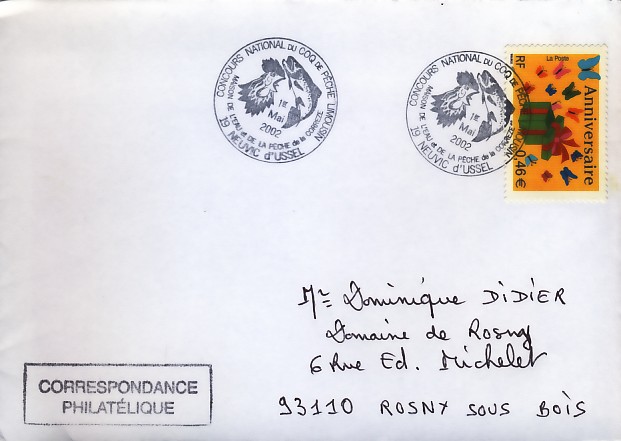 CONCOURS NATIONAL DU COQ DE PÊCHE LIMOUSIN
MAISON DE L'EAU et DE LA PÊCHE de la CORRÈZE
1er
Mai
2002
19 NEUVIC d'USSEL
CONCOURS NATIONAL DU COQ DE PÊCHE LIMOUSIN
MAISON DE L'EAU et DE LA PÊCHE de la CORRÈZE
1er
Mai
2002
19 NEUVIC d'USSEL
RF
La Poste
Anniversaire
0,46 €
Mr Dominique DIDIER
Domaine de Rosny
6 Rue Ed. Michelet
93110 ROSNY SOUS BOIS
CORRESPONDANCE
PHILATÉLIQUE